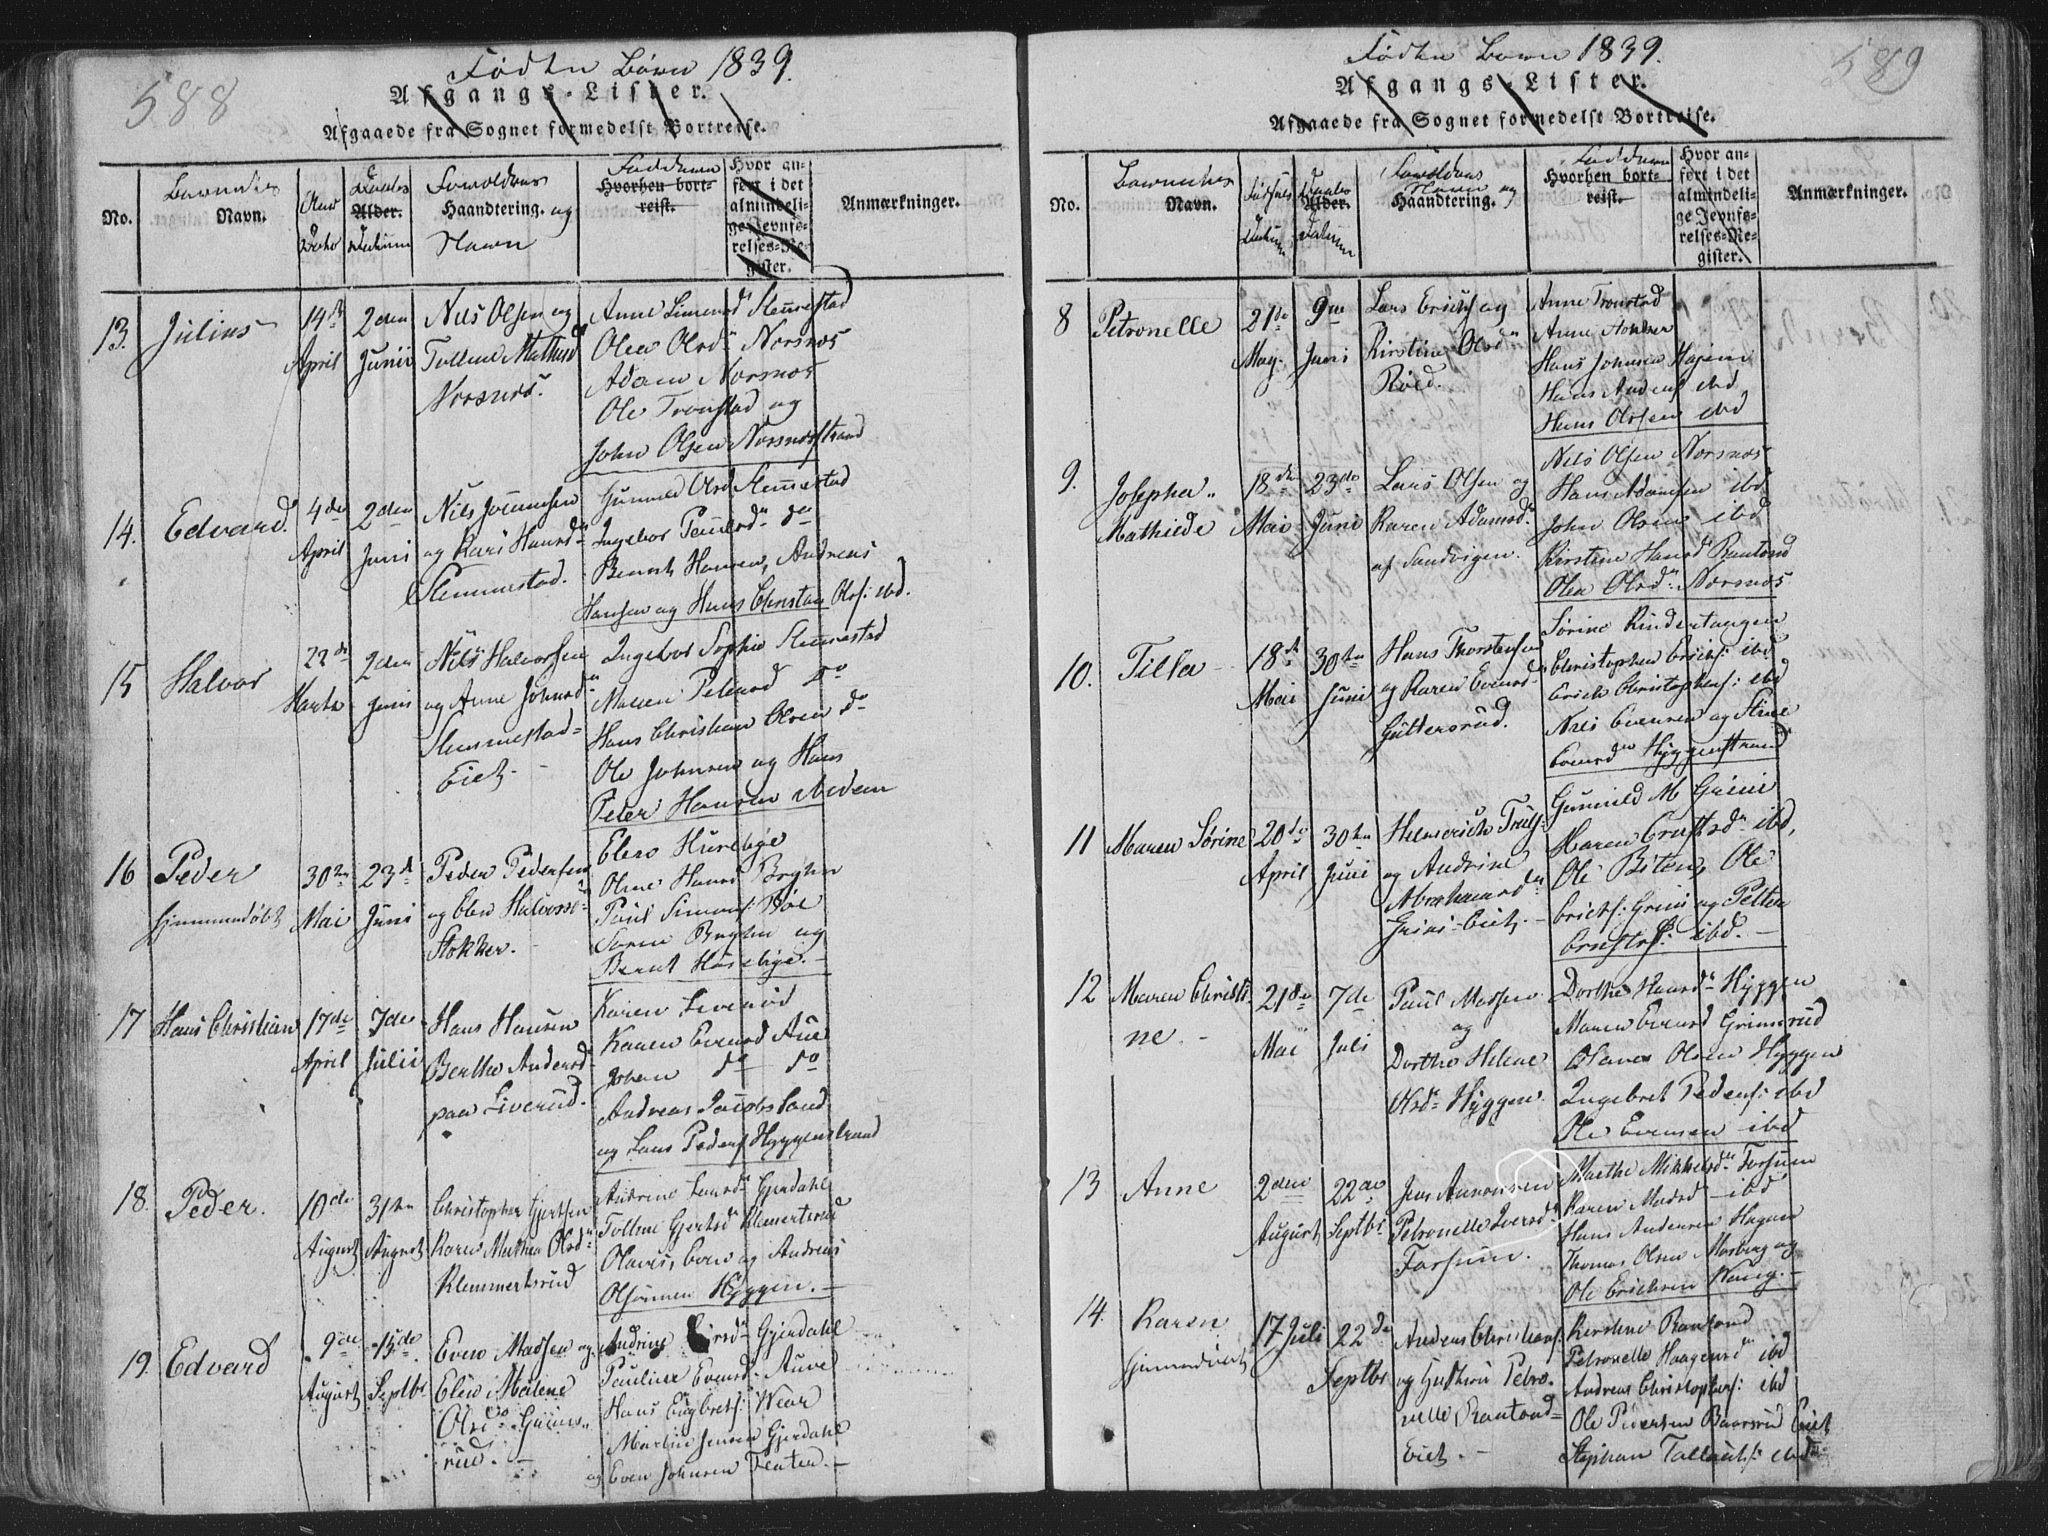 588
Födte Börn 1839.
Afgangs-Lister.
Afgaaede fra Sognet formedelst Bortreise.
No.
Barnets
Navn.
Alder.
Forældrenes
Haandtering. og
Navn
Fadderne
Hvorhen bort-
reist.
Hvor an-
ført i det
almindeli-
ge Jevnfø-
relses-Re-
gister.
Anmærkninger.
13.
Julius
14de
April
2den
Junii
Nils Olsen og
Tolline Mathisd
Norsnæs.
Anne Simensd Slemmestad
Olea Olsdr Norsnæs
Adam Norsnæs
Ole Tronstad og
John Olsen Norsnæsstrand
14.
Edvard.
4de
April
2den
Juni
Nils
og Kari Hansdr
Slemmestad.
Gunnild Olsd Slemmestad
Ingebor Paulsdr do
Bernt Hansen, Andreas
Hansen og Hans Christian Ols: ibd.
15
Halvor
22de
Marts
2den
Juni
Nils Halvorsen
og Anne Johnsdr
Slemmestad=
Eiet.
Ingebor Sophie Slemmestad
Maren Pedersd do
Hans Christian Olsen do
Ole Johnsen og Hans
Peter Hansen Nedern
16
Peder
hjemmedøbt
30te
Mai
23de
Juni
Peder Pedersen
og Elen Halvorsd
Stokker.
Elen Huseby
Oline Hansd
Paul Simens:
Søren og
Bernt Huseby.
17
Hans Christian
17de
April
7de
Julii
Hans Hansen
Berthe Andersd
paa Liverud.
Karen Liverud
Karen Evensd Aue
Johan do do
Andreas Jacobs Sand
og Lars Peders Hyggenstrand
18.
Peder.
10de
August
31te
August
Christopher Gjertsen
Karen Mathea Olsdr
Klemmertsrud
Andrine Larsdr Gjerdahl
Tolline Gjertsdr Klemertsrud
Olaves, Even og Andreas
Olsønner Hyggen.
19.
Edvard
9de
August
15de
Septbr
Even Madsen og
Elen Malene
Olsdr Grims-
rud.
Andrine Larsdr Gjerdahl
Pauline Evensd. Auve
Hans Engbrets: Wear
Martin Jensen Gjerdahl
og Even Johnsen Tenten.
589
Födte Börn 1839.
Afgangs-Lister.
Afgaaede fra Sognet formedelst Bortreise.
No.
Börnenes
Navn.
Fødsels
Datum
Alder.
Datum
Forældrenes
Navn og
Haandtering.
Fadderne
Hvorhen bort-
reist.
Hvor an-
ført i det
almindeli-
ge Jevnfø-
relses-Re-
gister.
Anmærkninger.
8
Petronelle
21de
May.
9de
Juni
Lars Erichs og
Kirstine Olsdr
Röed.
Anne Tronstad
Anne Stokker
Hans Johnsen Hajem
Hans Anders ibd
Hans Olsen ibd
9.
Josepha
Mathilde
18de
Mai
23de
Juni
Lars Olsen og
Karen Adamsdr
af Sandvigen.
Nils Olsen Norsnæs
Hans Adamsen ibd
John Olsen ibd
Kirstine Hansd Rantond
Olea Olsdr Norsnæs
10.
Tilla
18de
Mai
30te
Juni
Hans Thorstensen
og Karen Evensd
Guttersrud.
Sørine Kindertangen
Christopher Erichs: ibd
Erich Christophers: ibd
Nils Evensen og Stine
Evensdr Hyggenstrand
11
Maren Sörine
20de
April
30te
Juni
Helmerich Truls:
og Andrine
Abrahamsdr
Grini-Eiet.
Gunnild M Grini
Maren Ernstsdr ibd,
Ole Biten, Ole
Erichs: Grini og Petter
Ernsts: ibd.
12
Maren Christi-
ne.
21de
Mai
7de
Juli
Paul Madsen
og
Dorthe Helene
Olsdr Hyggen.
Dorthe Hansdr Hyggen
Maren Evensd Grimsrud
Olaves Olsen Hyggen
Ingebret Peders: ibd
Ole Evensen ibd
13
Anne
2den
August
22de
Septbr
Jens Aanonsen
Petronelle Iversdr
Torsum.
Marthe Mikkelsdr Torsum
Karen Madsd ibd
Hans Andersen Hagen
Thomas Olsen Morberg og
Ole Erichsen Wang.
14.
Karen
hjemmedøbt
17 Juli
22de
Septbr
Andreas Christians:
og Petro-
nelle Rantond-
Eiet.
Kirstine Rantond
Petronelle Haagensd ibd
Andreas Christophers: ibd
Ole Pedersen Baarsrud Eiet
Stephan Tallachs: ibd